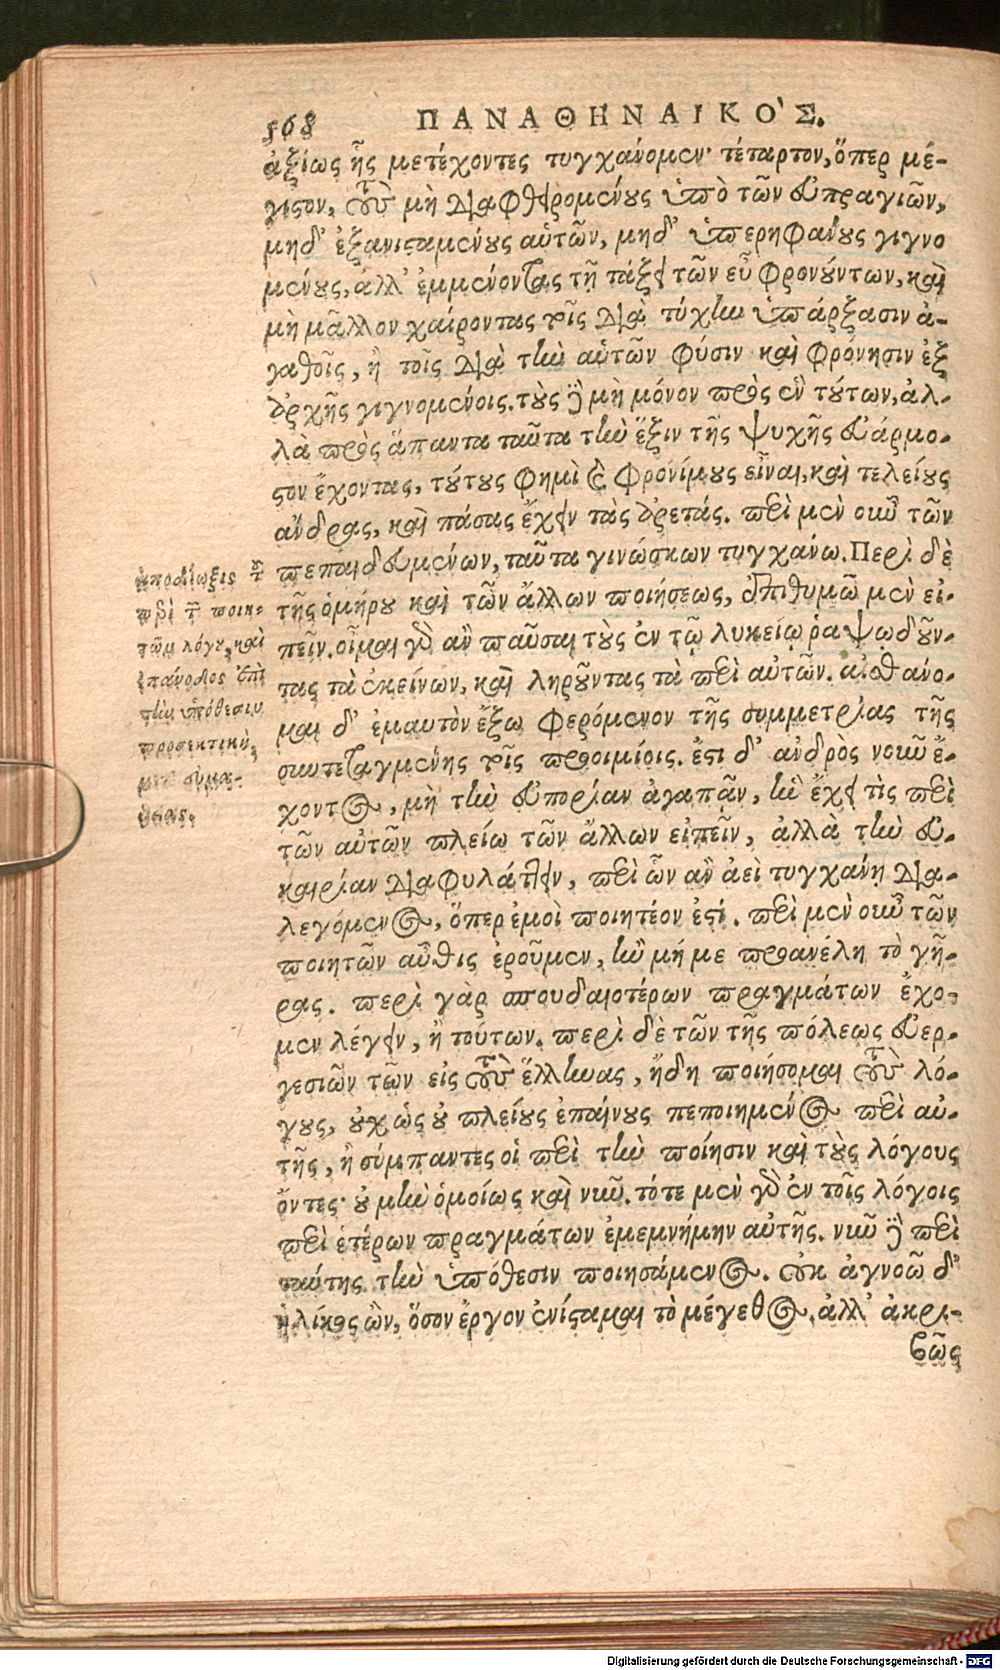 568 ΠΑΝΑΘΗΝΑΙΚΟ'Σ.
ἀξίως ἧς μετέχοντες τυγχάνομεν· τέταρτον, ὅπερ μέ-
γιστον, τοὺς μὴ διαφθειρομένους ὑπὸ τῶν εὐπραγιῶν,
μηδ' ἐξανισταμένους αὑτῶν, μηδ' ὑπερηφάνους γιγνο
μένους, ἀλλ' ἐμμένοντας τῇ τάξει τῶν εὖ φρονούντων, καὶ
μὴ μᾶλλον χαίροντας τοῖς διὰ τύχην ὑπάρξασιν ἀ-
γαθοῖς, ἢ τοῖς διὰ τὴν αὑτῶν φύσιν καὶ φρόνησιν ἐξ
ἀρχῆς γιγνομένοις. τοὺς δὲ μὴ μόνον πρὸς ἓν τούτων, ἀλ-
λὰ πρὸς ἅπαντα ταῦτα τὴν ἕξιν τῆς ψυχῆς εὐάρμο-
στον ἔχοντας, τούτους φημὶ καὶ φρονίμους εἶναι, καὶ τελείους
ἄνδρας, καὶ πάσας ἔχειν τὰς ἀρετάς. περὶ μὲν οὖν τῶν
πεπαιδευμένων, ταῦτα γινώσκων τυγχάνω. Περὶ δὲ
τῆς ὁμήρου καὶ τῶν ἄλλων ποιήσεως, ἐπιθυμῶ μὲν εἰ-
πεῖν. οἶμαι γὰρ ἂν παῦσαι τοὺς ἐν τῷ λυκείῳ ῥαψῳδοῦν-
τας τὰ ἐκείνων, καὶ ληροῦντας τὰ περὶ αὐτῶν. αἰσθάνο-
μαι δ' ἐμαυτὸν ἔξω φερόμενον τῆς συμμετρίας τῆς
συντεταγμένης τοῖς προοιμίοις. ἔστι δ' ἀνδρὸς νοῦν ἔ-
χοντος, μὴ τὴν εὐπορίαν ἀγαπᾶν, ἣν ἔχει τὶς περὶ
τῶν αὐτῶν πλείω τῶν ἄλλων εἰπεῖν, ἀλλὰ τὴν εὐ-
καιρίαν διαφυλάττειν, περὶ ὧν ἂν ἀεὶ τυγχάνῃ δια-
λεγόμενος, ὅπερ ἐμοὶ ποιητέον ἐστί. περὶ μὲν οὖν τῶν
ποιητῶν αὖθις ἐροῦμεν, ἢν μή με προανέλῃ τὸ γῆ-
ρας. περὶ γὰρ σπουδαιοτέρων πραγμάτων ἔχο-
μεν λέγειν, ἢ τούτων. περὶ δὲ τῶν τῆς πόλεως εὐερ-
γεσιῶν τῶν εἰς τοὺς ἕλληνας, ἤδη ποιήσομαι τοὺς λό-
γους, οὐχ ὡς οὐ πλείους ἐπαίνους πεποιημένος περὶ αὐ-
τῆς, ἢ σύμπαντες οἱ περὶ τὴν ποίησιν καὶ τοὺς λόγους
ὄντες· οὐ μὴν ὁμοίως καὶ νῦν. τότε μὲν γὰρ ἐν τοῖς λόγοις
περὶ ἑτέρων πραγμάτων ἐμεμνήμην αὐτῆς. νῦν δὲ περὶ
ταύτης τὴν ὑπόθεσιν ποιησάμενος. οὐκ ἀγνοῶ δ'
ἡλίκος ὢν, ὅσον ἔργον ἐνίσταμαι τὸ μέγεθος. ἀλλ' ἀκρι-
βῶς
ἀποδίωξις τοῦ
περὶ τῶν ποιη-
τῶν λόγου, καὶ
ἐπάνοδος ἐπὶ
τὴν ὑπόθεσιν
προσεκτικὴ,
Digitalisierung gefördert durch die Deutsche Forschungsgemeinschaft - DFG